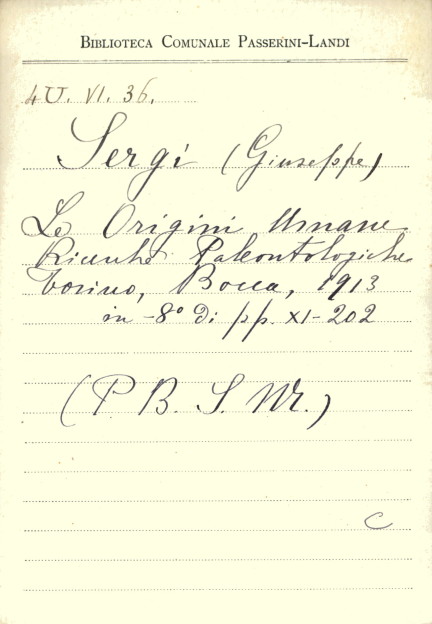 BIBLIOTECA COMUNALE PASSERINI-LANDI
4U. VI. 36.
Sergi (Giuseppe)
Le Origini Umane
Ricerche Paleontologiche
Torino, Bocca, 1913
in-8° di pp. XI-202
(P. B. S. M.)
C